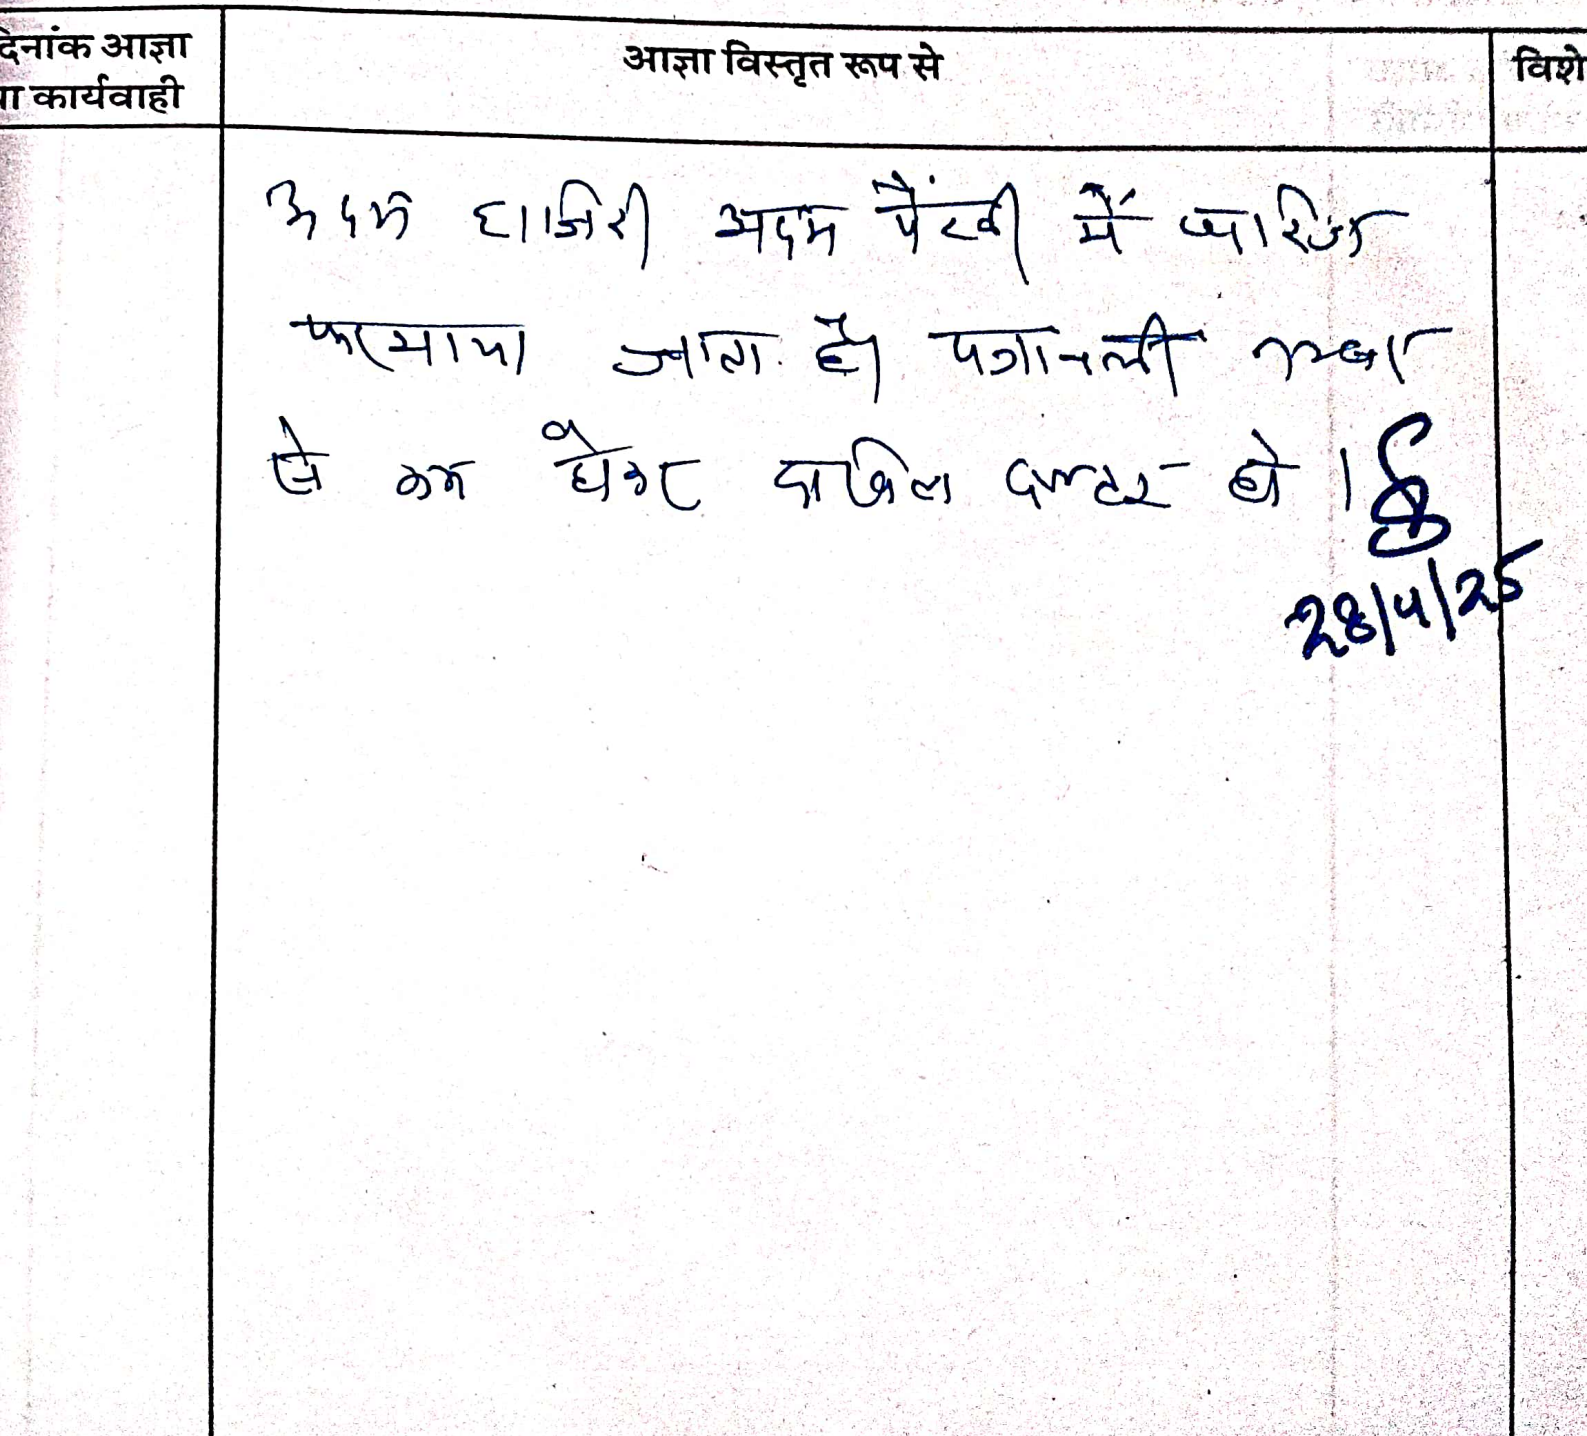 दिनांक आज्ञा
या कार्यवाही
आज्ञा विस्तृत रूप से
विशे
अदम हाजिरी अदम पैंरवी में खारिज
फरमाया जाता है। पत्रावली नम्बर
से कम होकर दाखिल दफ्तर हो ।
28/4/25